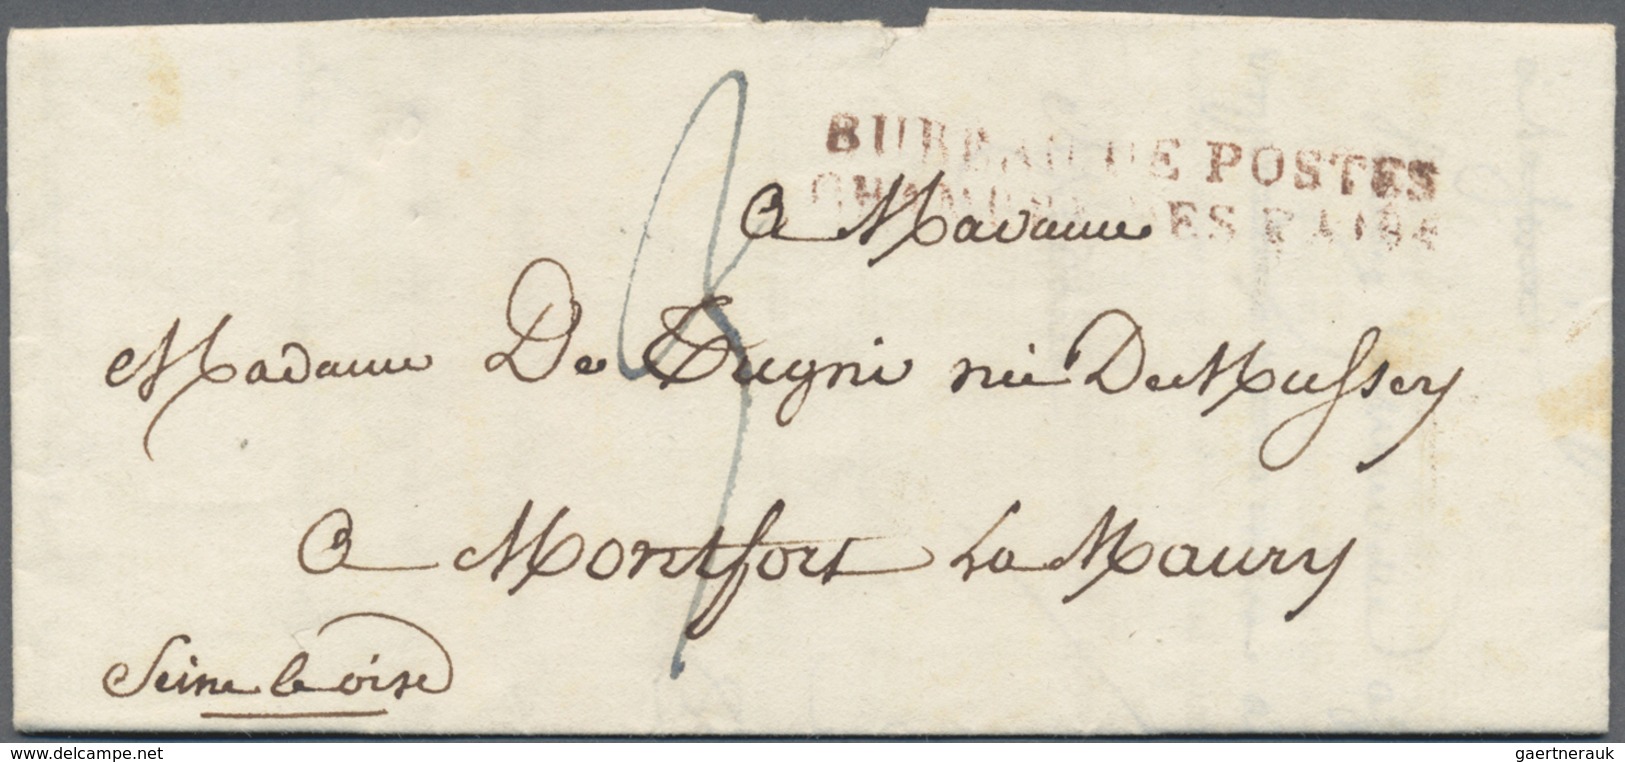 BUREAU DE POSTES
CHAMBRE DES PAIRS
3
a Madame
Madame De Tugni née De Mussey
a Montfort La Maury
Seine le oise
www.delcampe.net
gaertnerauk